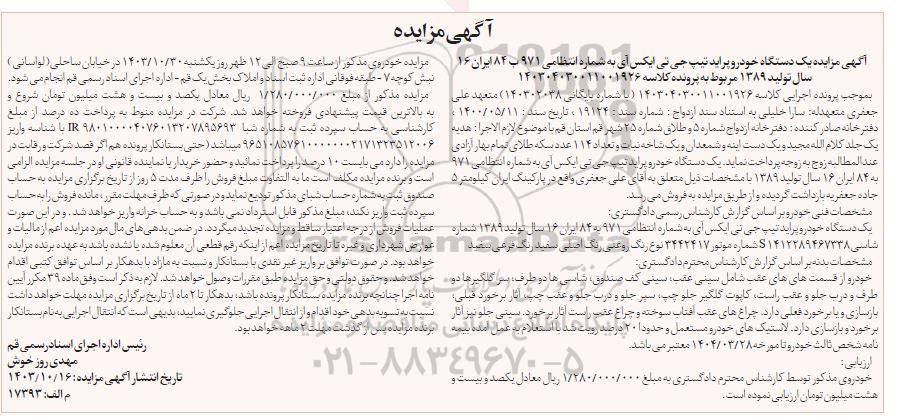 آگهی مزایده
آگهی مزایده یک دستگاه خودرو پراید تیپ جی تی ایکس آی به شماره انتظامی ۹۷۱ ب ۸۴ ایران ۱۶
سال تولید ۱۳۸۹ مربوط به پرونده کلاسه ۱۴۰۳۰۴۰۳۰۰۱۱۰۰۱۹۲۶
بموجب پرونده اجرایی کلاسه ۱۴۰۳۰۴۰۳۰۰۱۱۰۰۱۹۲۶ (با شماره بایگانی ۱۴۰۳۰۲۰۳۸) متعهد علی
جعفری متعهدله: سارا خلیلی به استناد سند ازدواج: شماره سند: ۱۹۱۲۴، تاریخ سند: ۱۴۰۰/۰۵/۱۱،
دفترخانه صادر کننده: دفترخانه ازدواج شماره ۵ و طلاق شماره ۲۵ شهر قم استان قم با موضوع لازم الاجرا: هدیه
یک جلد کلام الله مجید و یک دست اینه و شمعدان و یک شاخه نبات و تعداد ۱۱۴ عدد سکه طلای تمام بهار آزادی
عندالمطالبه زوج به زوجه پرداخت نماید. یک دستگاه خودرو پراید تیپ جی تی ایکس آی به شماره انتظامی ۹۷۱
به ۸۴ ایران ۱۶ سال تولید ۱۳۸۹ با مشخصات ذیل متعلق به آقای علی جعفری واقع در پارکینگ ایران کیلومتر ۵
جاده جعفریه بازداشت گردیده و از طریق مزایده به فروش می رسد.
مشخصات فنی خودرو بر اساس گزارش کارشناس رسمی دادگستری:
یک دستگاه خودرو پراید تیپ جی تی ایکس آی به شماره انتظامی ۹۷۱ به ۸۴ ایران ۱۶ سال تولید ۱۳۸۹ شماره
شاسی S۱۴۱۲۲۸۹۴۶۷۳۳۸ شماره موتور ۳۴۴۲۴۱۷ نوع رنگ روغنی رنگ اصلی سفید رنگ فرعی بیضد
مشخصات بدنه بر اساس گزارش کارشناس محترم دادگستری:
خودرو از قسمت های عقب شامل سینی عقب، سینی کف صندوق، شاسی ها دو طرف، سر گلگیرها دو
طرف و درب جلو و عقب راست، کاپوت گلگیر جلو چپ، سپر جلو و درب جلو و عقب چپ، آثار برخورد قبلی،
بازسازی و یا برخورد فعلی دارد. چراغ های عقب آفتاب سوخته و چراغ عقب راست آثار برخورد. سینی جلو نیز آثار
برخورد و بازسازی دارد. لاستیک های خودرو مستعمل و حدودا ۲۰ درصد رویت شد با استعلام به عمل آمده بیمه
نامه شخص ثالث خودرو تا مورخه ۱۴۰۴/۰۳/۲۸ معتبر می باشد.
ارزیابی:
خودروی مذکور توسط کارشناس محترم دادگستری به مبلغ ۱/۲۸۰/۰۰۰/۰۰۰ ریال معادل یکصد و بیست و
هشت میلیون تومان ارزیابی نموده است.
مزایده خودروی مذکور از ساعت ۹ صبح الی ۱۲ ظهر روز یکشنبه ۱۴۰۳/۱۰/۳۰ در خیابان ساحلی (لواسانی)
نبش کوچه ۷ - طبقه فوقانی اداره ثبت اسناد و املاک بخش یک قم - اداره اجرای اسناد رسمی قم انجام می شود.
مزایده مذکور از مبلغ ۱/۲۸۰/۰۰۰/۰۰۰ ریال معادل یکصد و بیست و هشت میلیون تومان شروع و
به بالاترین قیمت پیشنهادی فروخته خواهد شد. شرکت در مزایده منوط به پرداخت ده درصد از مبلغ
کارشناسی به حساب سپرده ثبت به شماره شبا IR ۹۸۰۱۰۰۰۰۴۰۷۶۰۱۳۲۰۷۸۹۵۶۹۳ با شناسه واریز
۹۶۵۱۰۸۵۷۶۱۰۰۰۰۰۰۲۱۷۱۳۲۳۵۱۲۰۰۶ میباشد (حتی بستانکار پرونده هم اگر قصد شرکت و رقابت در
مزایده را دارد می بایست ۱۰ درصد را پرداخت نمائید و حضور خریدار یا نماینده قانونی او در جلسه مزایده الزامی
است و برنده مزایده مکلف است ما به التفاوت مبلغ فروش را ظرف مدت ۵ روز از تاریخ برگزاری مزایده به حساب
صندوق ثبت به شماره حساب شبای مذکور تودیع نماید و در صورتی که ظرف مهلت مقرر، مانده فروش را به حساب
سپرده ثبت واریز نکند، مبلغ مذکور قابل استرداد نمی باشد و به حساب خزانه واریز خواهد شد. و در این صورت
عملیات فروش از درجه اعتبار ساقط و مزایده تجدید میگردد. در ضمن بدهی های مال مورد مزایده اعم از مالیات و
عوارض شهرداری و غیره تا تاریخ مزایده اعم از اینکه رقم قطعی آن معلوم شده یا نشده باشد به عهده برنده مزایده
خواهد بود. در صورت توافق بر واریز غیر نقدی با بستانکار و نسبت به مازاد با بدهکار بر اساس توافق کتبی اقدام
خواهد شد. و حقوق دولتی و حق مزایده طبق مقررات وصول خواهد شد. لازم به ذکر است وفق ماده ۳۹ مکرر آیین
نامه اجرا چنانچه برنده مزایده بستانکار پرونده باشد، بدهکار تا ۲ ماه از تاریخ برگزاری مزایده مهلت خواهد داشت
نسبت به تسویه بدهی خود اقدام و از انتقال اجرایی جلوگیری نمایند، بدیهی است که انتقال اجرایی به نام بستانکار
برنده مزایده پس از گذشت مهلت ۲ ماهه خواهد بود.
رئیس اداره اجرای اسناد رسمی قم
مهدی روز خوش
تاریخ انتشار آگهی مزایده: ۱۴۰۳/۱۰/۱۶
م الف: ۱۷۳۹۳
۰۲۱-۸۸۳۴۹۶۷۰-۵